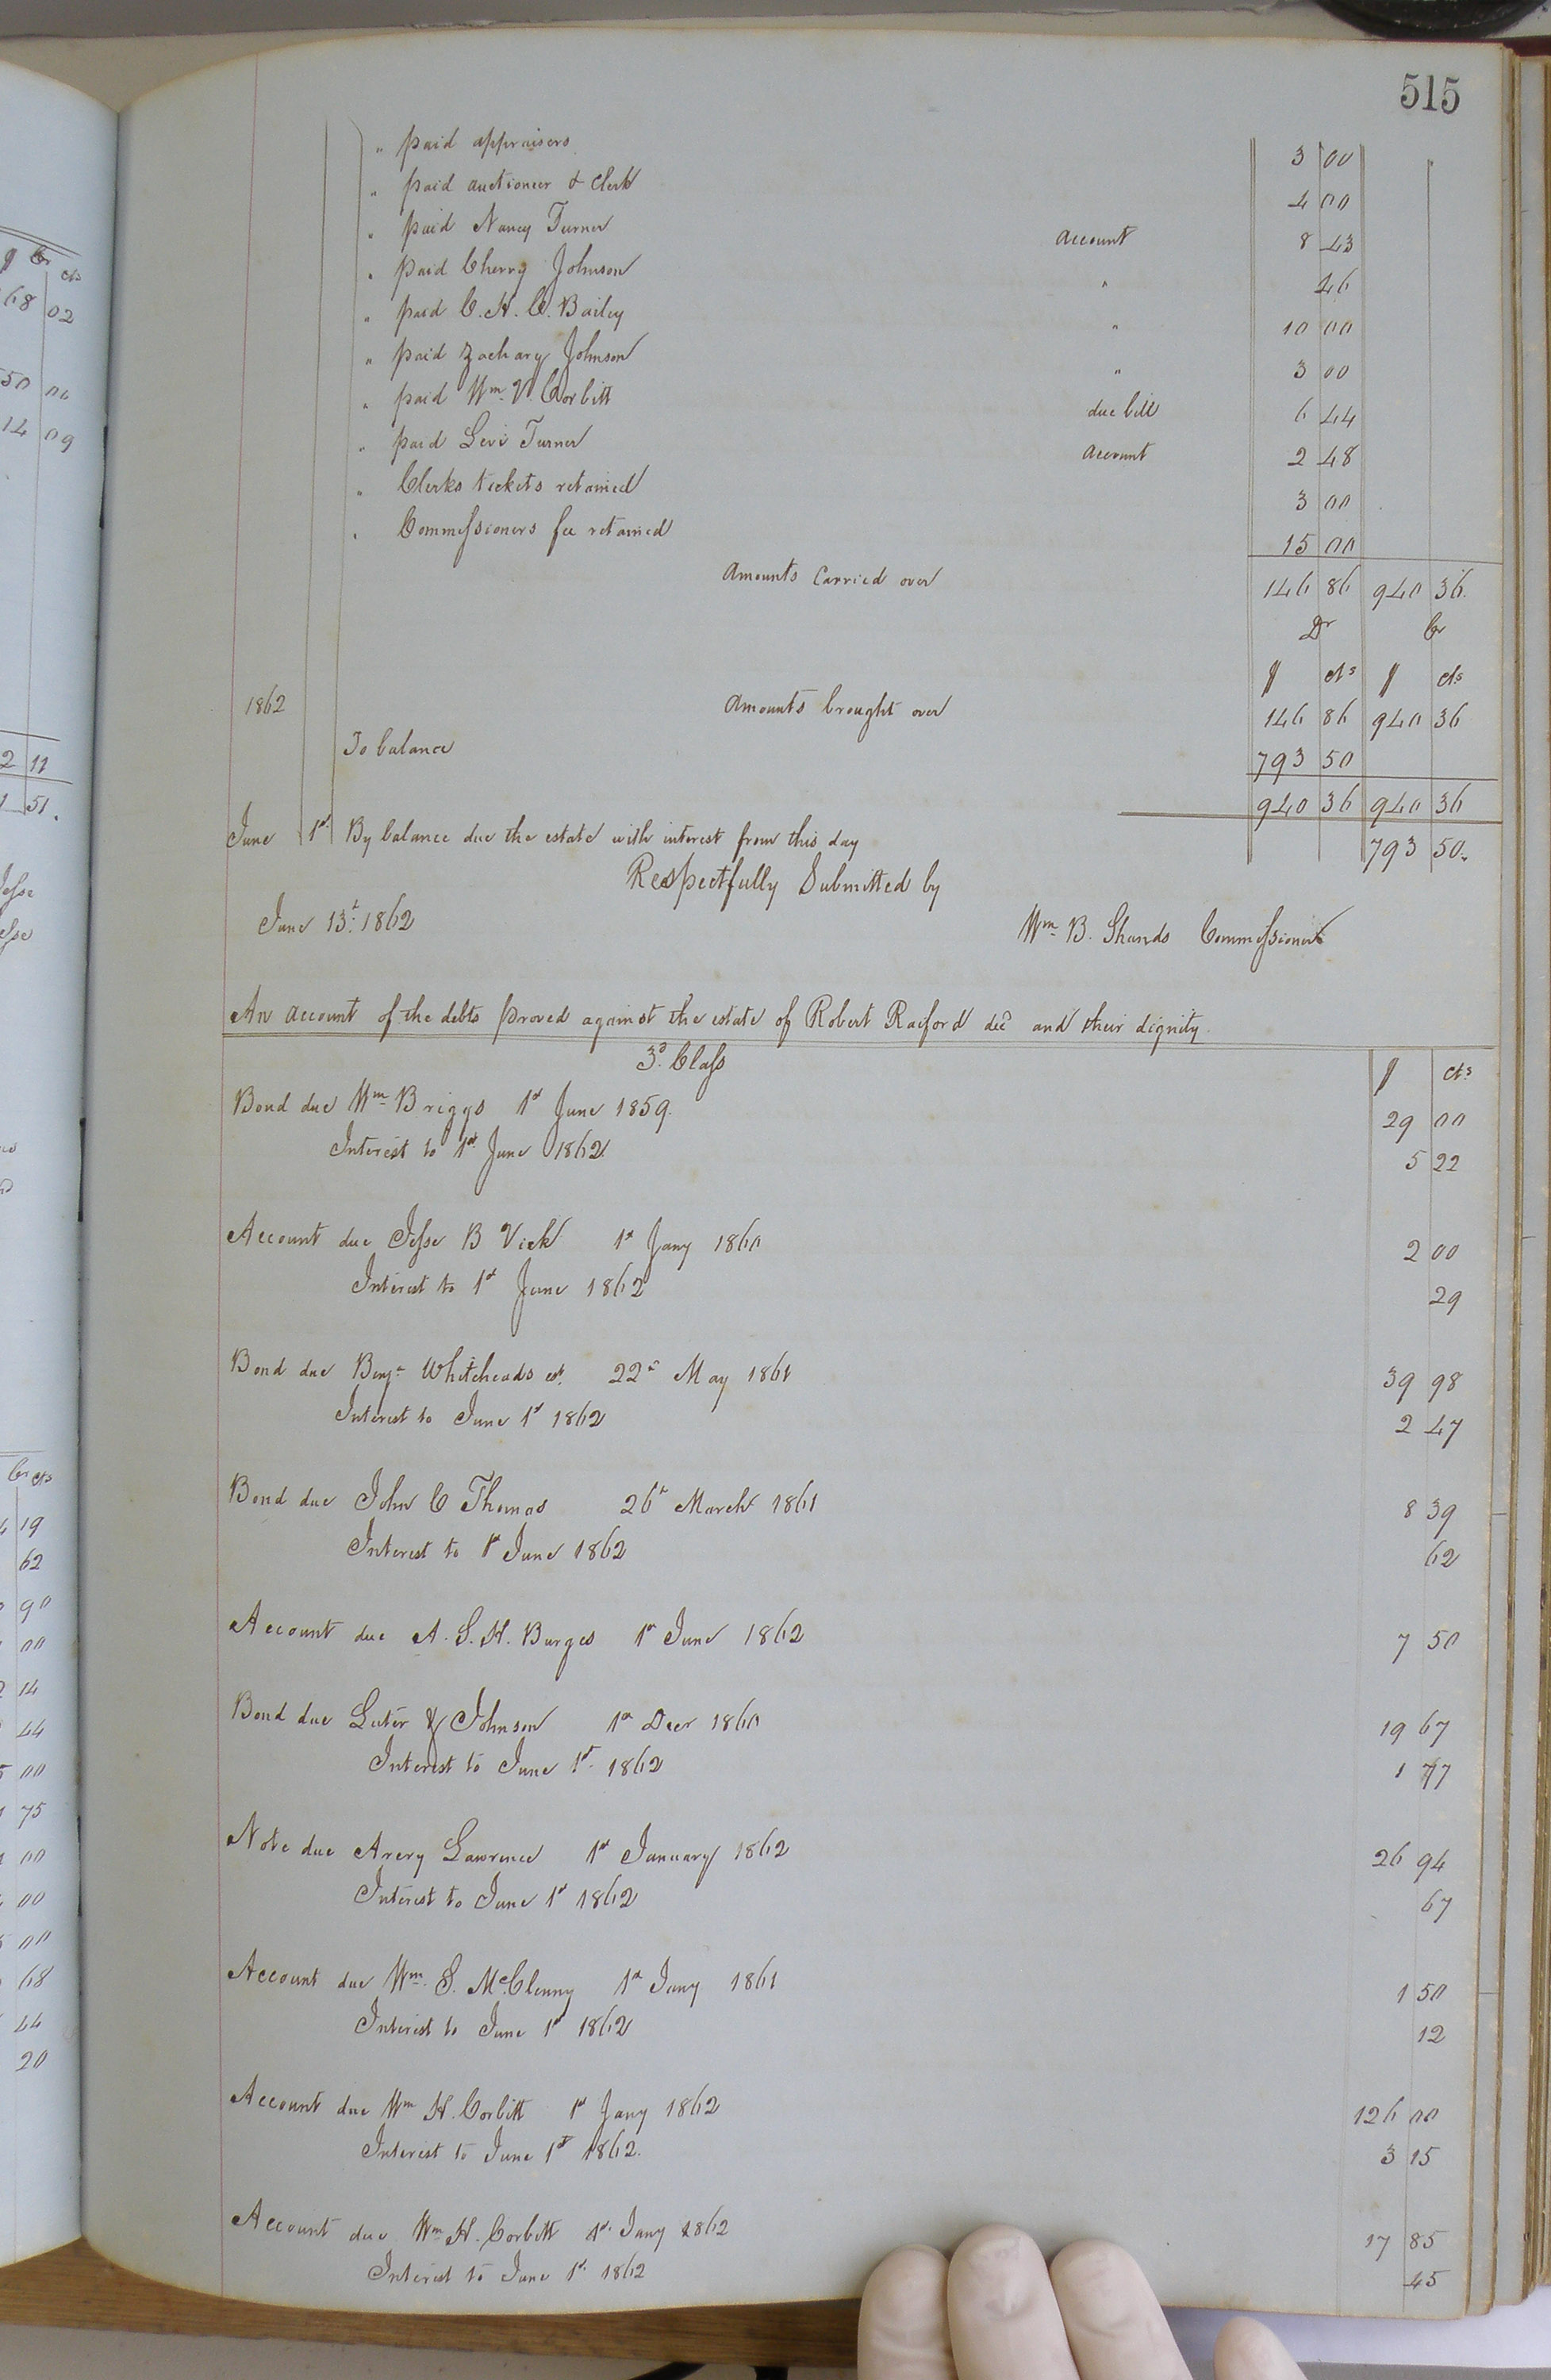 515
" paid appraisers 3 00
" paid auctioneer & Clerk 4 00
" paid Nancy Turner Account 8 43
" paid Cherry Johnson " 46
" paid C. H. C. Bailey " 10 00
" paid Zachary Johnson " 3 00
" paid Wm. V. Corbitt due bill 6 44
" paid Levi Turner Account 2 48
" Clerks tickets retained 3 00
" Commissioners fee retained 15 00
Amounts Carried over 146 86 940 36
Dr Cr
$ cts $ cts
1862 Amounts brought over 146 86 940 36
To balance 793 50
940 36 940 36
June 1st By balance due the estate with interest from this day 793 50
Respectfully Submitted by
June 13th 1862
Wm. B. Shands Commissioner
An account of the debts proved against the estate of Robert Raiford decd and their dignity
3d Class $ cts
Bond due Wm Briggs 1st June 1859 29 00
Interest to 1st June 1862 5 22
Account due Jesse B Vick 1st Jany 1860 2 00
Interest to 1st June 1862 29
Bond due Benjn Whiteheads est. 22d May 1861 39 98
Interest to June 1st 1862 2 47
Bond due John C Thomas 26th March 1861 8 39
Interest to 1st June 1862 62
Account due A. S. H. Burges 1st June 1862 7 50
Bond due Luter & Johnson 1st Decr 1860 19 67
Interest to June 1st 1862 1 77
Note due Avery Lawrence 1st January 1862 26 94
Interest to June 1st 1862 67
Account due Wm. S. McClenny 1st Jany 1861 1 50
Interest to June 1st 1862 12
Account due Wm H. Corbitt 1st Jany 1862 126 00
Interest to June 1st 1862 3 15
Account due Wm H. Corbitt 1st Jany 1862 17 85
Interest to June 1st 1862 45